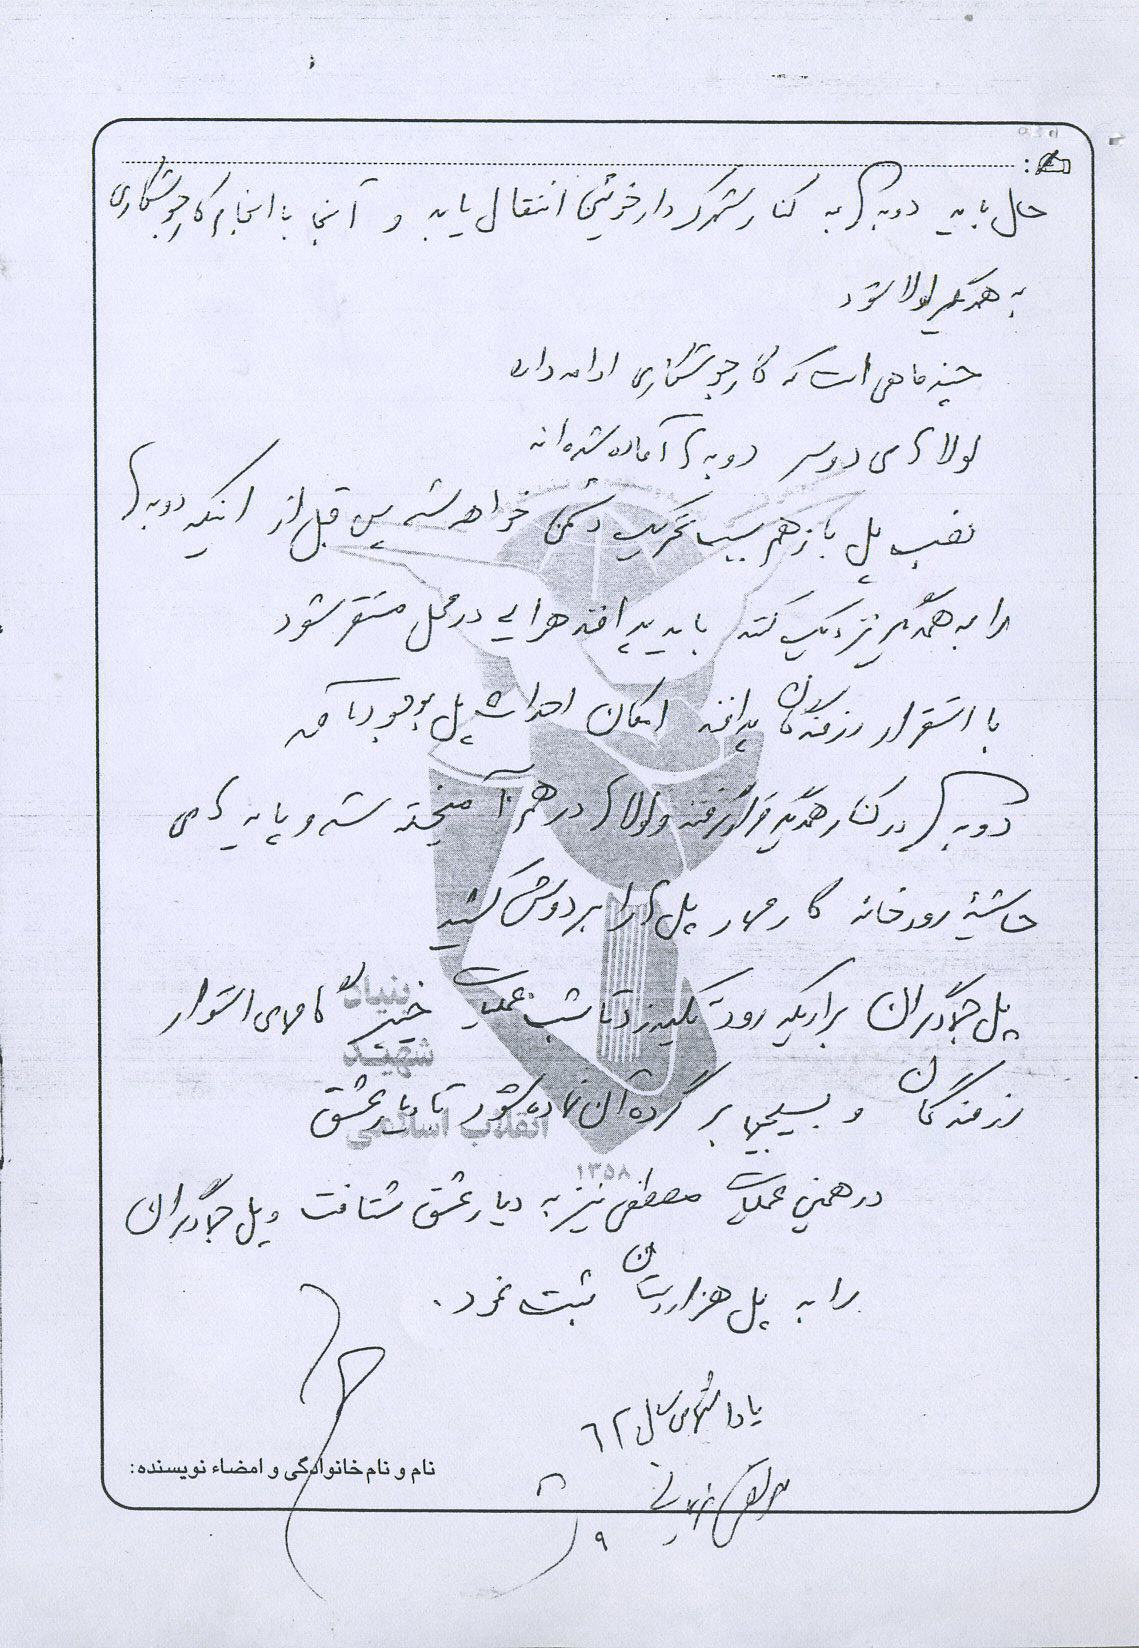 حال باید دوبه‌ها به کنار شهرک دارخوئین انتقال یابد و آنجا با انجام کار جوشکاری
به همدیگر لولا شود
چند ماهی است که کار جوشکاری ادامه دارد
لولاهای دو سر دوبه‌ها آماده شده‌اند
نصب پل باز هم سبب تحریک دشمن خواهد شد پس قبل از اینکه دوبه‌ها
را به همدیگر نزدیک کنند باید پدافند هوایی در محل مستقر شود
با استقرار رزمندگان پدافند امکان احداث پل بوجود آمد
دوبه‌ها در کنار همدیگر قرار گرفتند و لولاها در هم آمیخته شد و پایه‌های
حاشیهٔ رودخانه کار مهار پل‌ها را بر دوش کشید
پل جهادگران بر اریکه رود تکیه زد تا شب عملیات خیبر گامهای استوار
رزمندگان و بسیجیها بر گرده آن نهاده شود تا دیار عشق
در همین عملیات مصطفی نیز به دیار عشق شتافت و پل جهادگران
را به پل هزار ثبت نمود.
یادداشتهای سال ۶۲
نام و نام خانوادگی و امضاء نویسنده:
۹
بنیاد
شهید
انقلاب اسلامی
۱۳۵۸